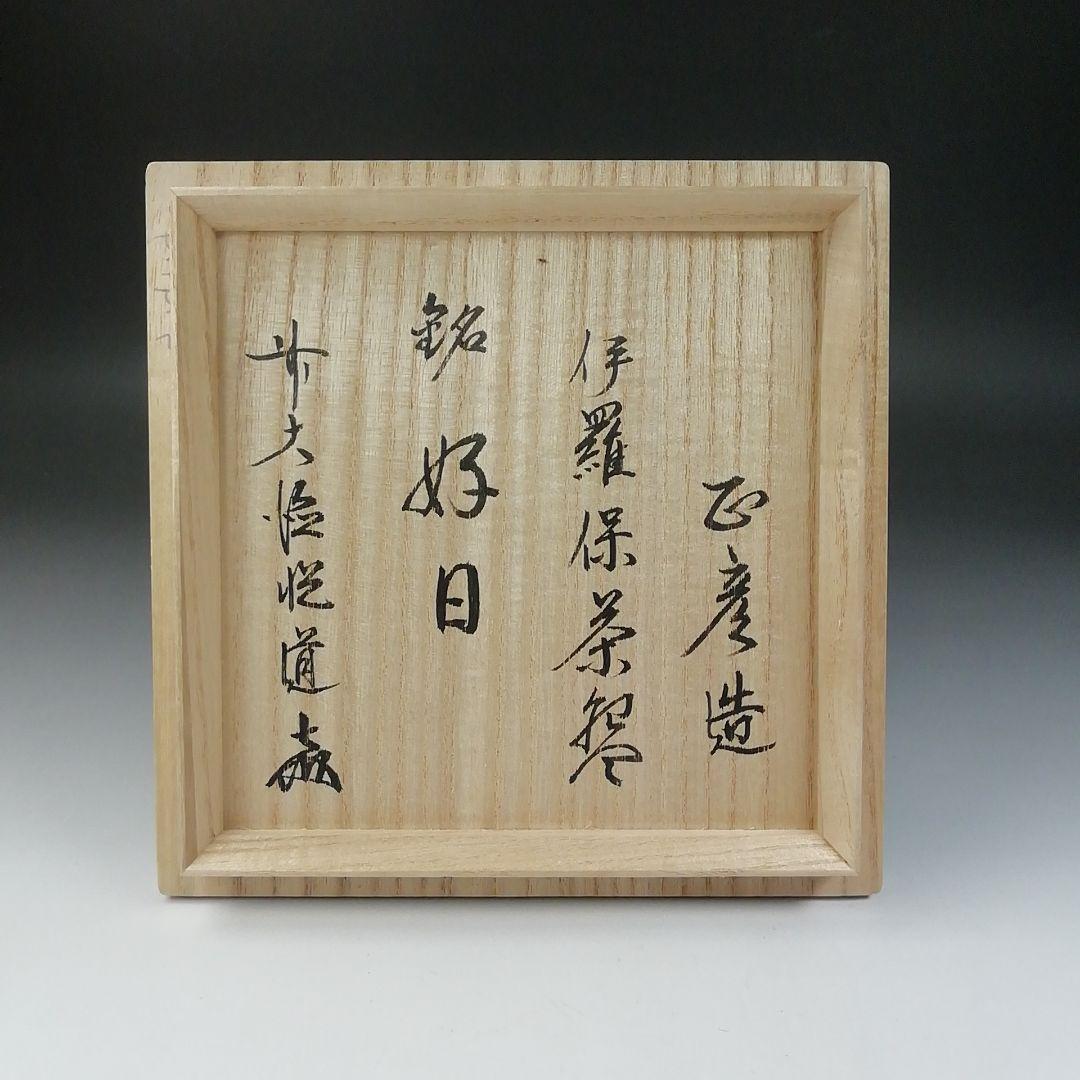 正彦造
伊羅保茶盌
銘 好日
大徳悦道